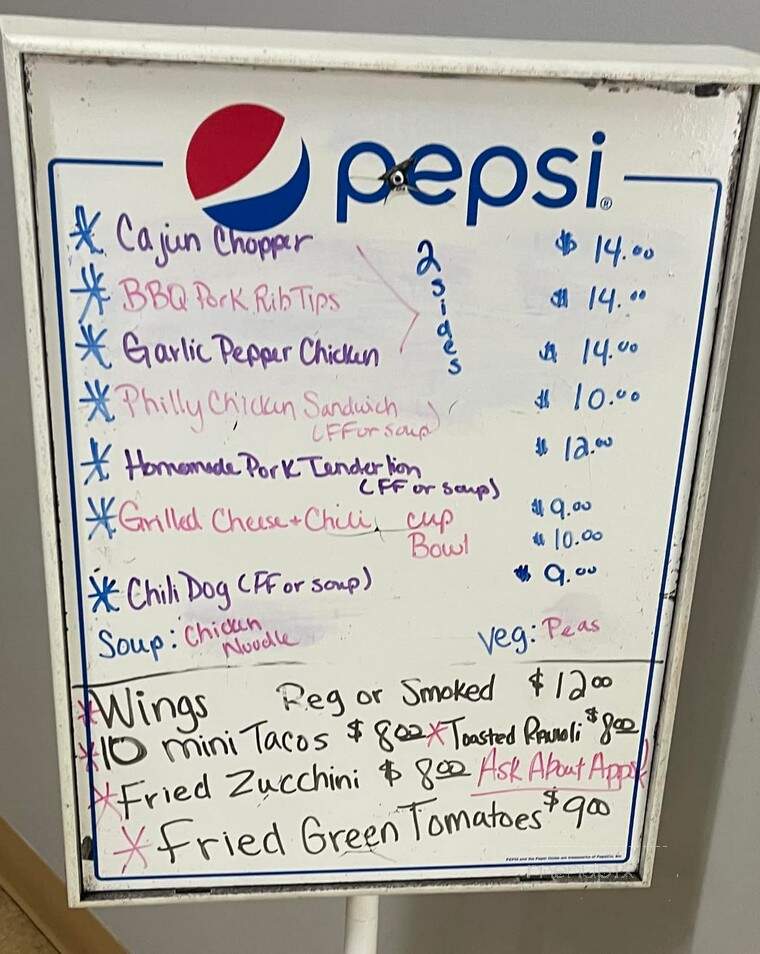 pepsi®
* Cajun Chopper $ 14.00
2 sides
* BBQ Pork Rib Tips $ 14.00
* Garlic Pepper Chicken $ 14.00
* Philly Chicken Sandwich $ 10.00
(FF or soup)
* Homemade Pork Tenderlion $ 12.00
(FF or soup)
* Grilled Cheese + Chili cup $ 9.00
Bowl $ 10.00
* Chili Dog (FF or soup) $ 9.00
Soup: Chicken Noodle veg: Peas
* Wings Reg or Smoked $ 12.00
* 10 mini Tacos $ 8.00 * Toasted Ravioli $ 8.00
* Fried Zucchini $ 8.00 Ask About Apps!
* Fried Green Tomatoes $ 9.00